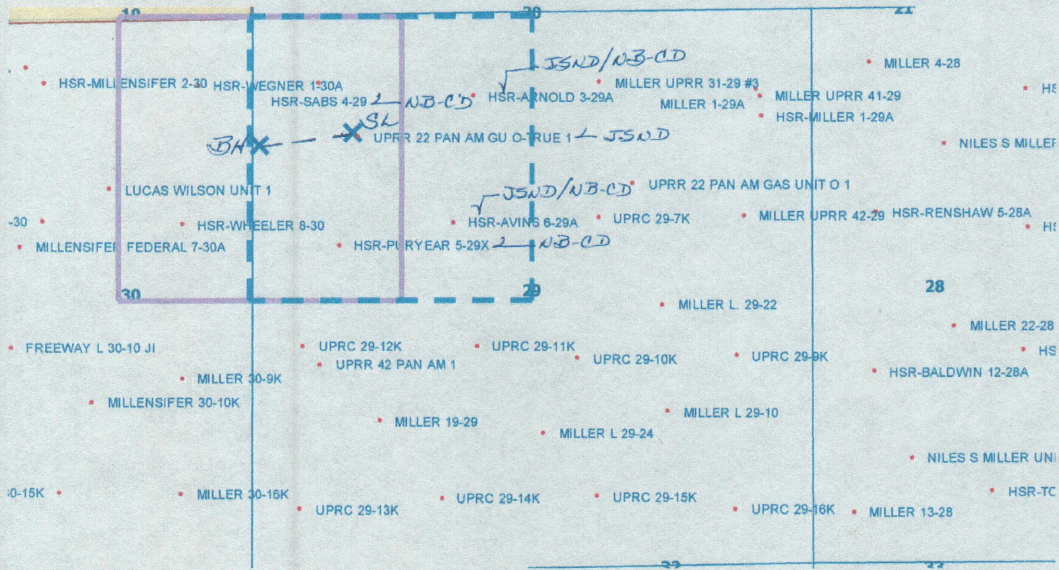 19
20
21
JSND/NB-CD
HSR-MILLENSIFER 2-30
HSR-WEGNER 1-30A
HSR-SABS 4-29
NB-CD
HSR-ARNOLD 3-29A
MILLER UPRR 31-29 #3
MILLER 4-28
MILLER 1-29A
MILLER UPRR 41-29
HSR-MILLER 1-29A
BH
SL
UPRR 22 PAN AM GU O-TRUE 1
JSND
NILES S MILLER
LUCAS WILSON UNIT 1
JSND/NB-CD
UPRR 22 PAN AM GAS UNIT O 1
-30
HSR-WHEELER 8-30
HSR-AVINS 6-29A
UPRC 29-7K
MILLER UPRR 42-29
HSR-RENSHAW 5-28A
MILLENSIFER FEDERAL 7-30A
HSR-PURYEAR 5-29X
NB-CD
30
29
28
MILLER L. 29-22
MILLER 22-28
FREEWAY L 30-10 JI
UPRC 29-12K
UPRC 29-11K
UPRC 29-10K
UPRC 29-9K
HS
UPRR 42 PAN AM 1
MILLER 30-9K
HSR-BALDWIN 12-28A
MILLENSIFER 30-10K
MILLER 19-29
MILLER L 29-10
MILLER L 29-24
NILES S MILLER UNI
30-15K
MILLER 30-16K
UPRC 29-13K
UPRC 29-14K
UPRC 29-15K
UPRC 29-16K
MILLER 13-28
HSR-TO